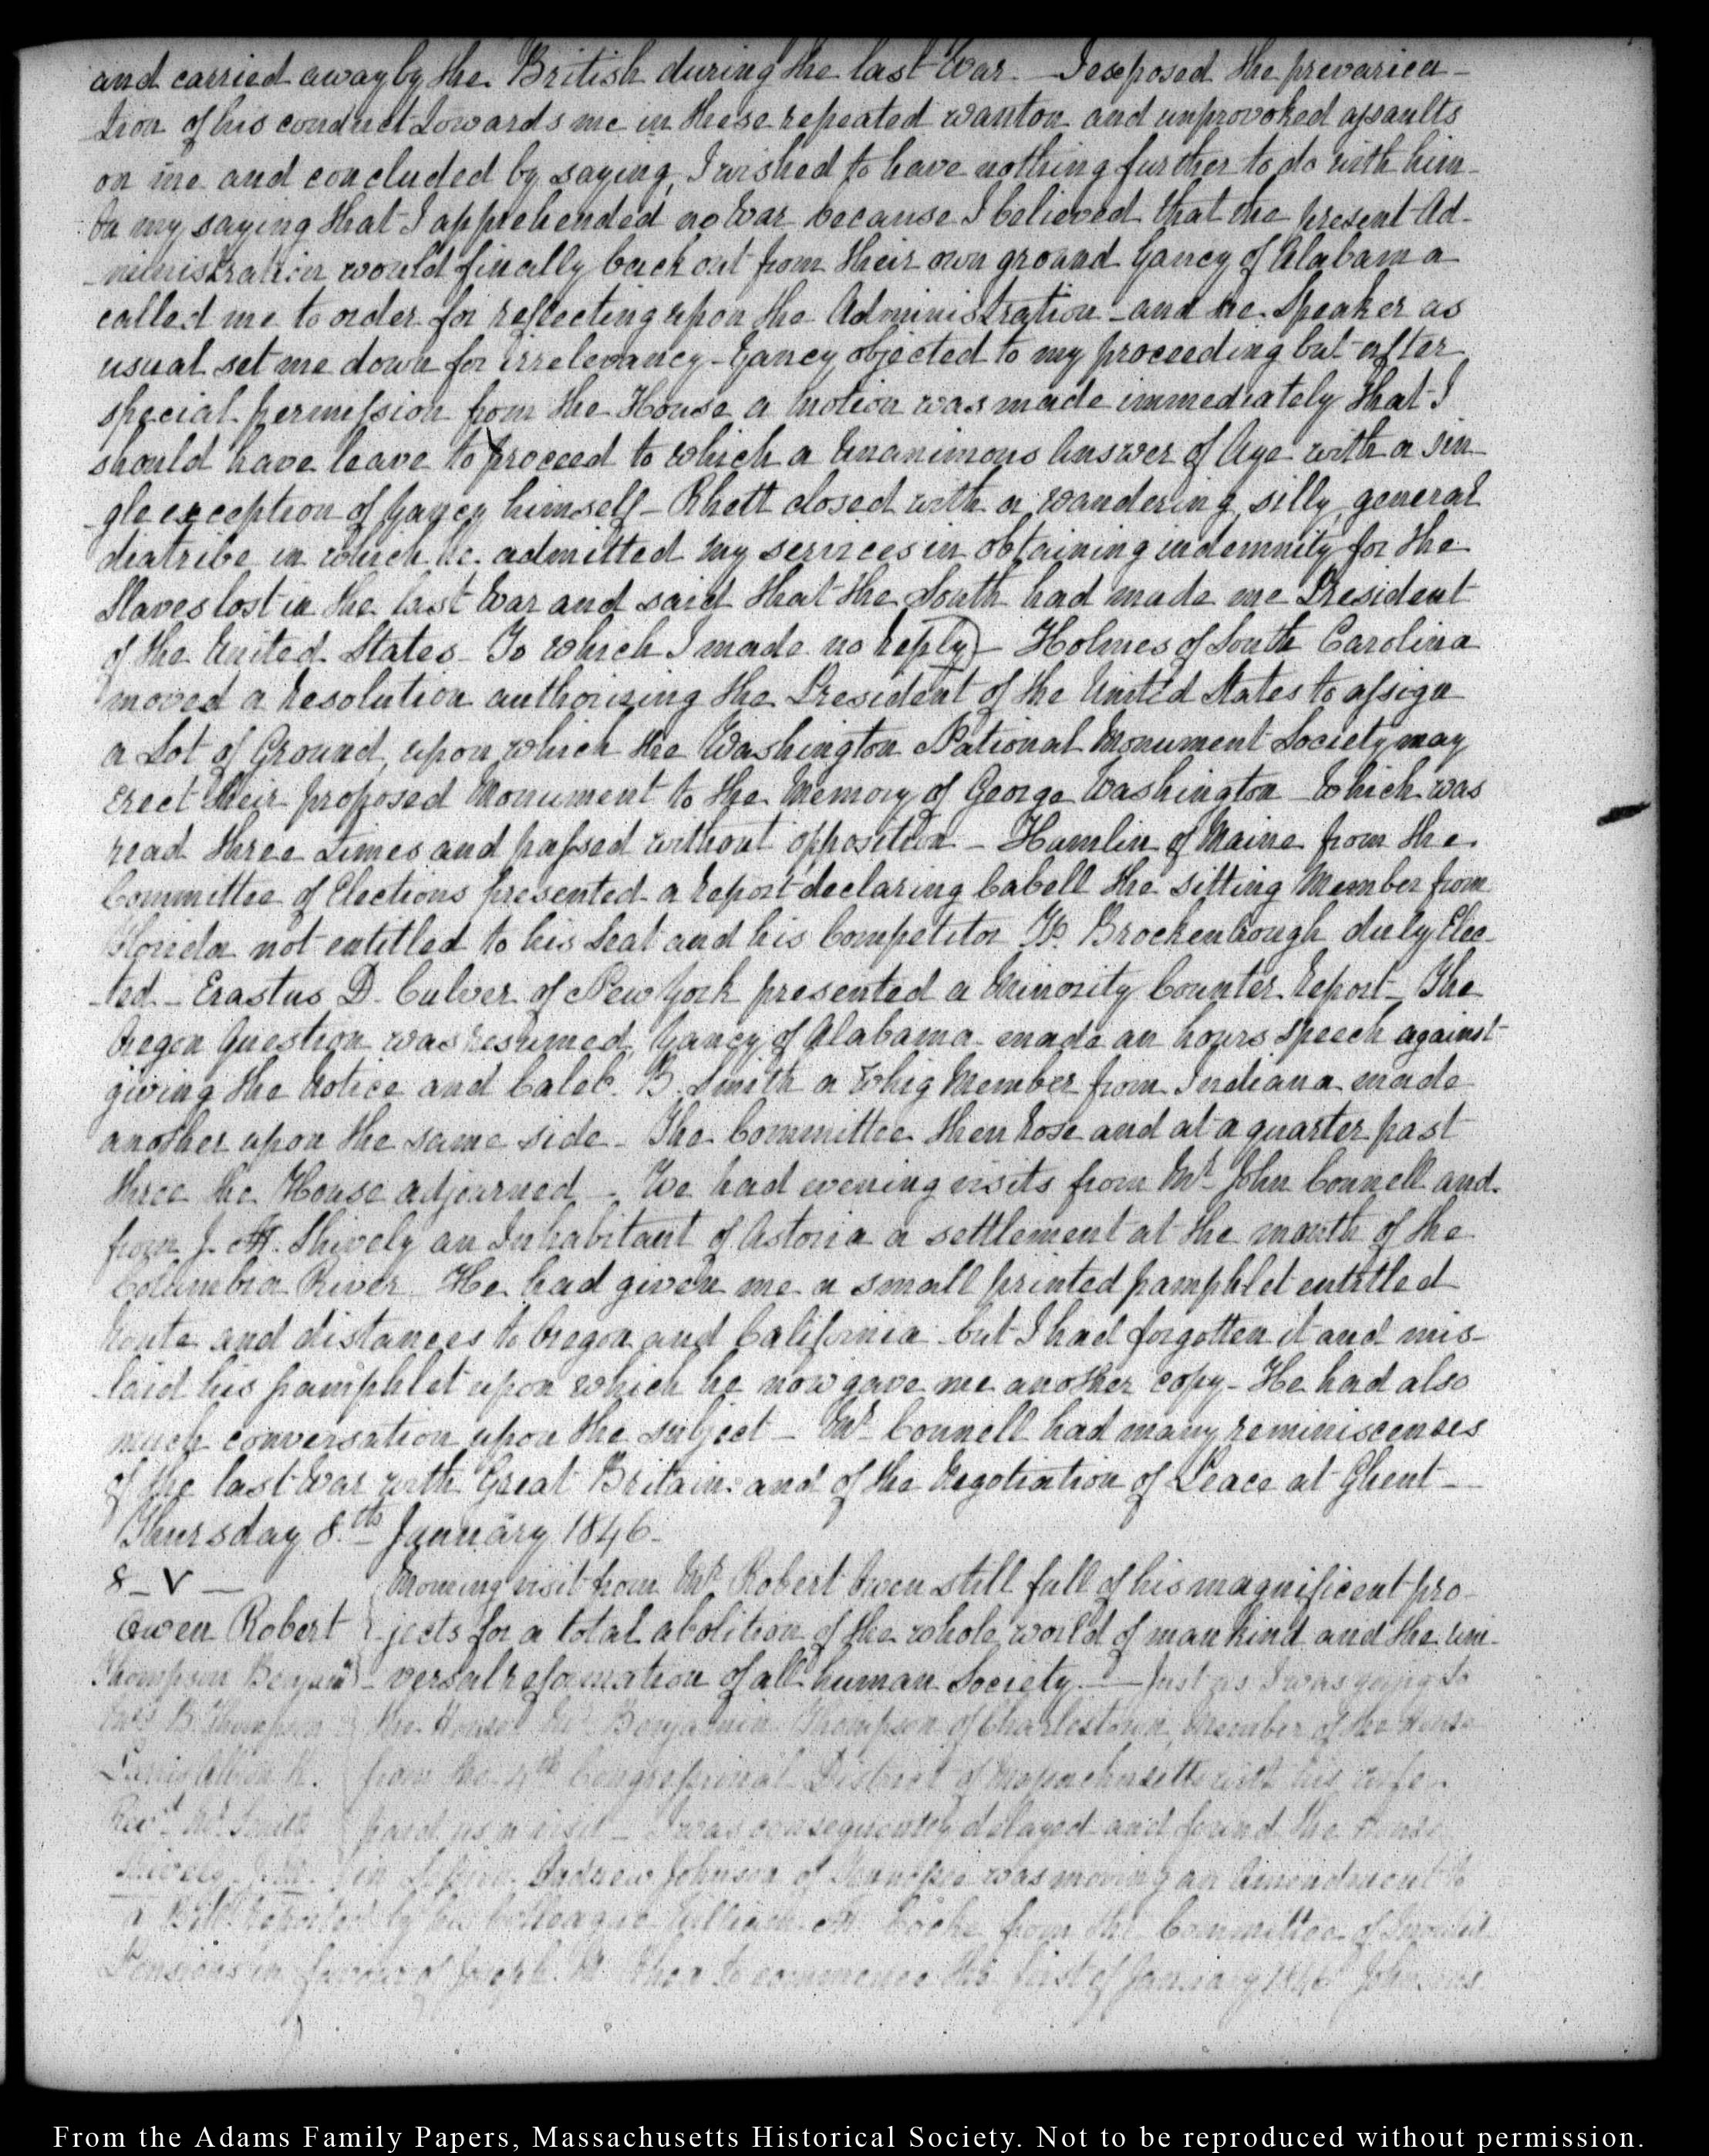 and carried away by the British during the last War. — I exposed the prevarica-
tion of his conduct towards me in these repeated wanton and unprovoked assaults
on me and concluded by saying, I wished to have nothing further to do with him-
On my saying that I apprehended no War because I believed that the present Ad-
-ministration would finally back out from their own ground Yancy of Alabama
called me to order for reflecting upon the Administration - and the Speaker as
usual set me down for irrelevancy - Yancy objected to my proceeding but after
special permission from the House a motion was made immediately that I
should have leave to proceed to which a Unanimous Answer of Aye with a sin-
-gle exception of Yancy himself - Rhett closed with a wandering, silly, general
diatribe in which he admitted my services in obtaining indemnity for the
Slaves lost in the last War and said that the South had made me President
of the United States - To which I made no reply) - Holmes of South Carolina
moved a resolution authorizing the President of the United States to assign
a Lot of Ground, upon which the Washington National Monument Society may
erect their proposed Monument to the Memory of George Washington - Which was
read three times and passed without opposition - Hamlin of Maine from the
Committee of Elections presented a report declaring Cabell the sitting Member from
Florida not entitled to his Seat and his Competitor Brockenbrough duly Elec-
-ted - Erastus D. Culver of New York presented a Minority Counter Report - The
Oregon Question was resumed, Yancy of Alabama made an hours speech against
giving the Notice and Caleb B. Smith a Whig Member from Indiana made
another upon the same side - The Committee then rose and at a quarter past
three the House adjourned - We had evening visits from Mr John Connell and
from J. M. Shively an Inhabitant of Astoria a settlement at the mouth of the
Columbia River. He had given me a small printed pamphlet entitled
Route and distances to Oregon and California but I had forgotten it and mis-
-laid his pamphlet upon which he now gave me another copy - He had also
much conversation upon the subject - Mr Connell had many reminiscenses
of the last War with Great Britain and of the Negotiation of Peace at Ghent -
Thursday 8.th January 1846 -
8 - V - Morning visit from Mr Robert Owen still full of his magnificent pro-
Owen Robert jects for a total abolition of the whole world of mankind and the uni-
Thompson Benjamn - versal reformation of all human Society. — Just as I was going to
Mrs B. Thompson the House Mr Benjamin Thompson of Charlestown, Member of the House
from the 4th Congressional District of Massachusetts with his wife
Revd Mr Smith paid us a visit - I was consequently delayed and found the House
Shively J. M. in Session. Andrew Johnson of Tennessee was moving an Amendment to
a Bill reported by his Colleague William M. Cocke from the Committee of Invalid
Pensions in favour of Joseph to commence the first of January 1846 Johnsons
From the Adams Family Papers, Massachusetts Historical Society. Not to be reproduced without permission.